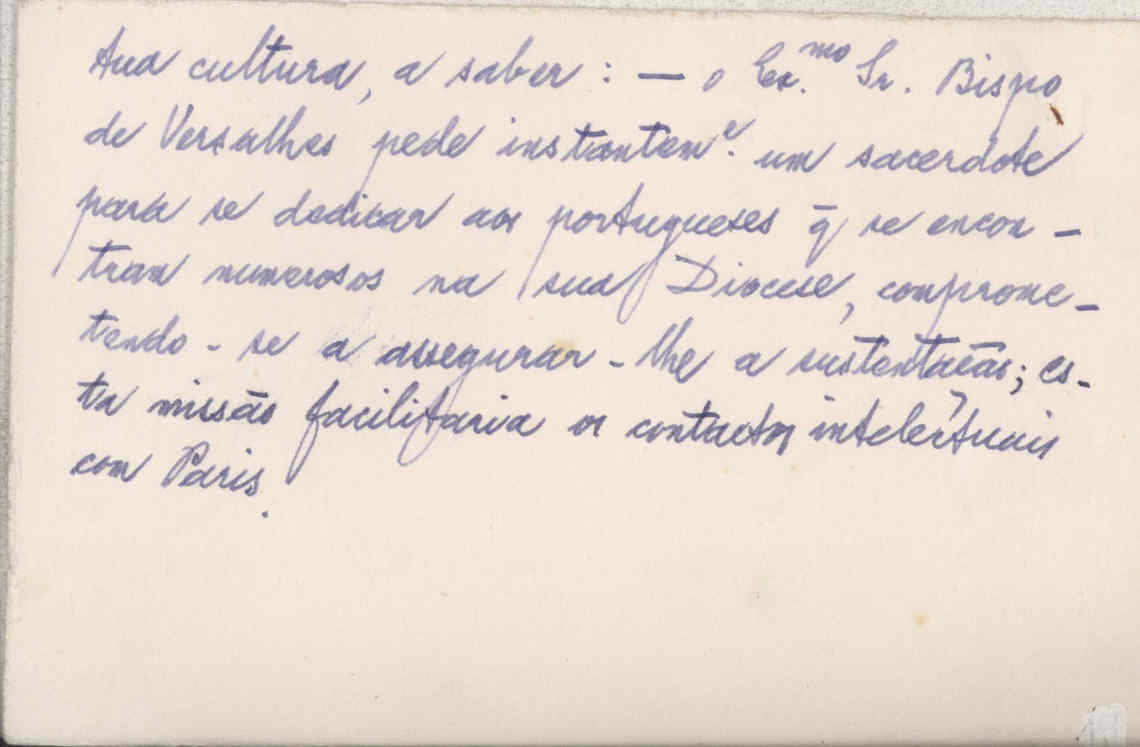 sua cultura, a saber: — o Ex.mo Sr. Bispo
de Versalhes pede instantem.e um sacerdote
para se dedicar aos portugueses q̃ se encon-
tram numerosos na sua Diocese, comprome-
tendo-se a assegurar-lhe a sustentação; es-
ta missão facilitaria os contactos intelectuais
com Paris.